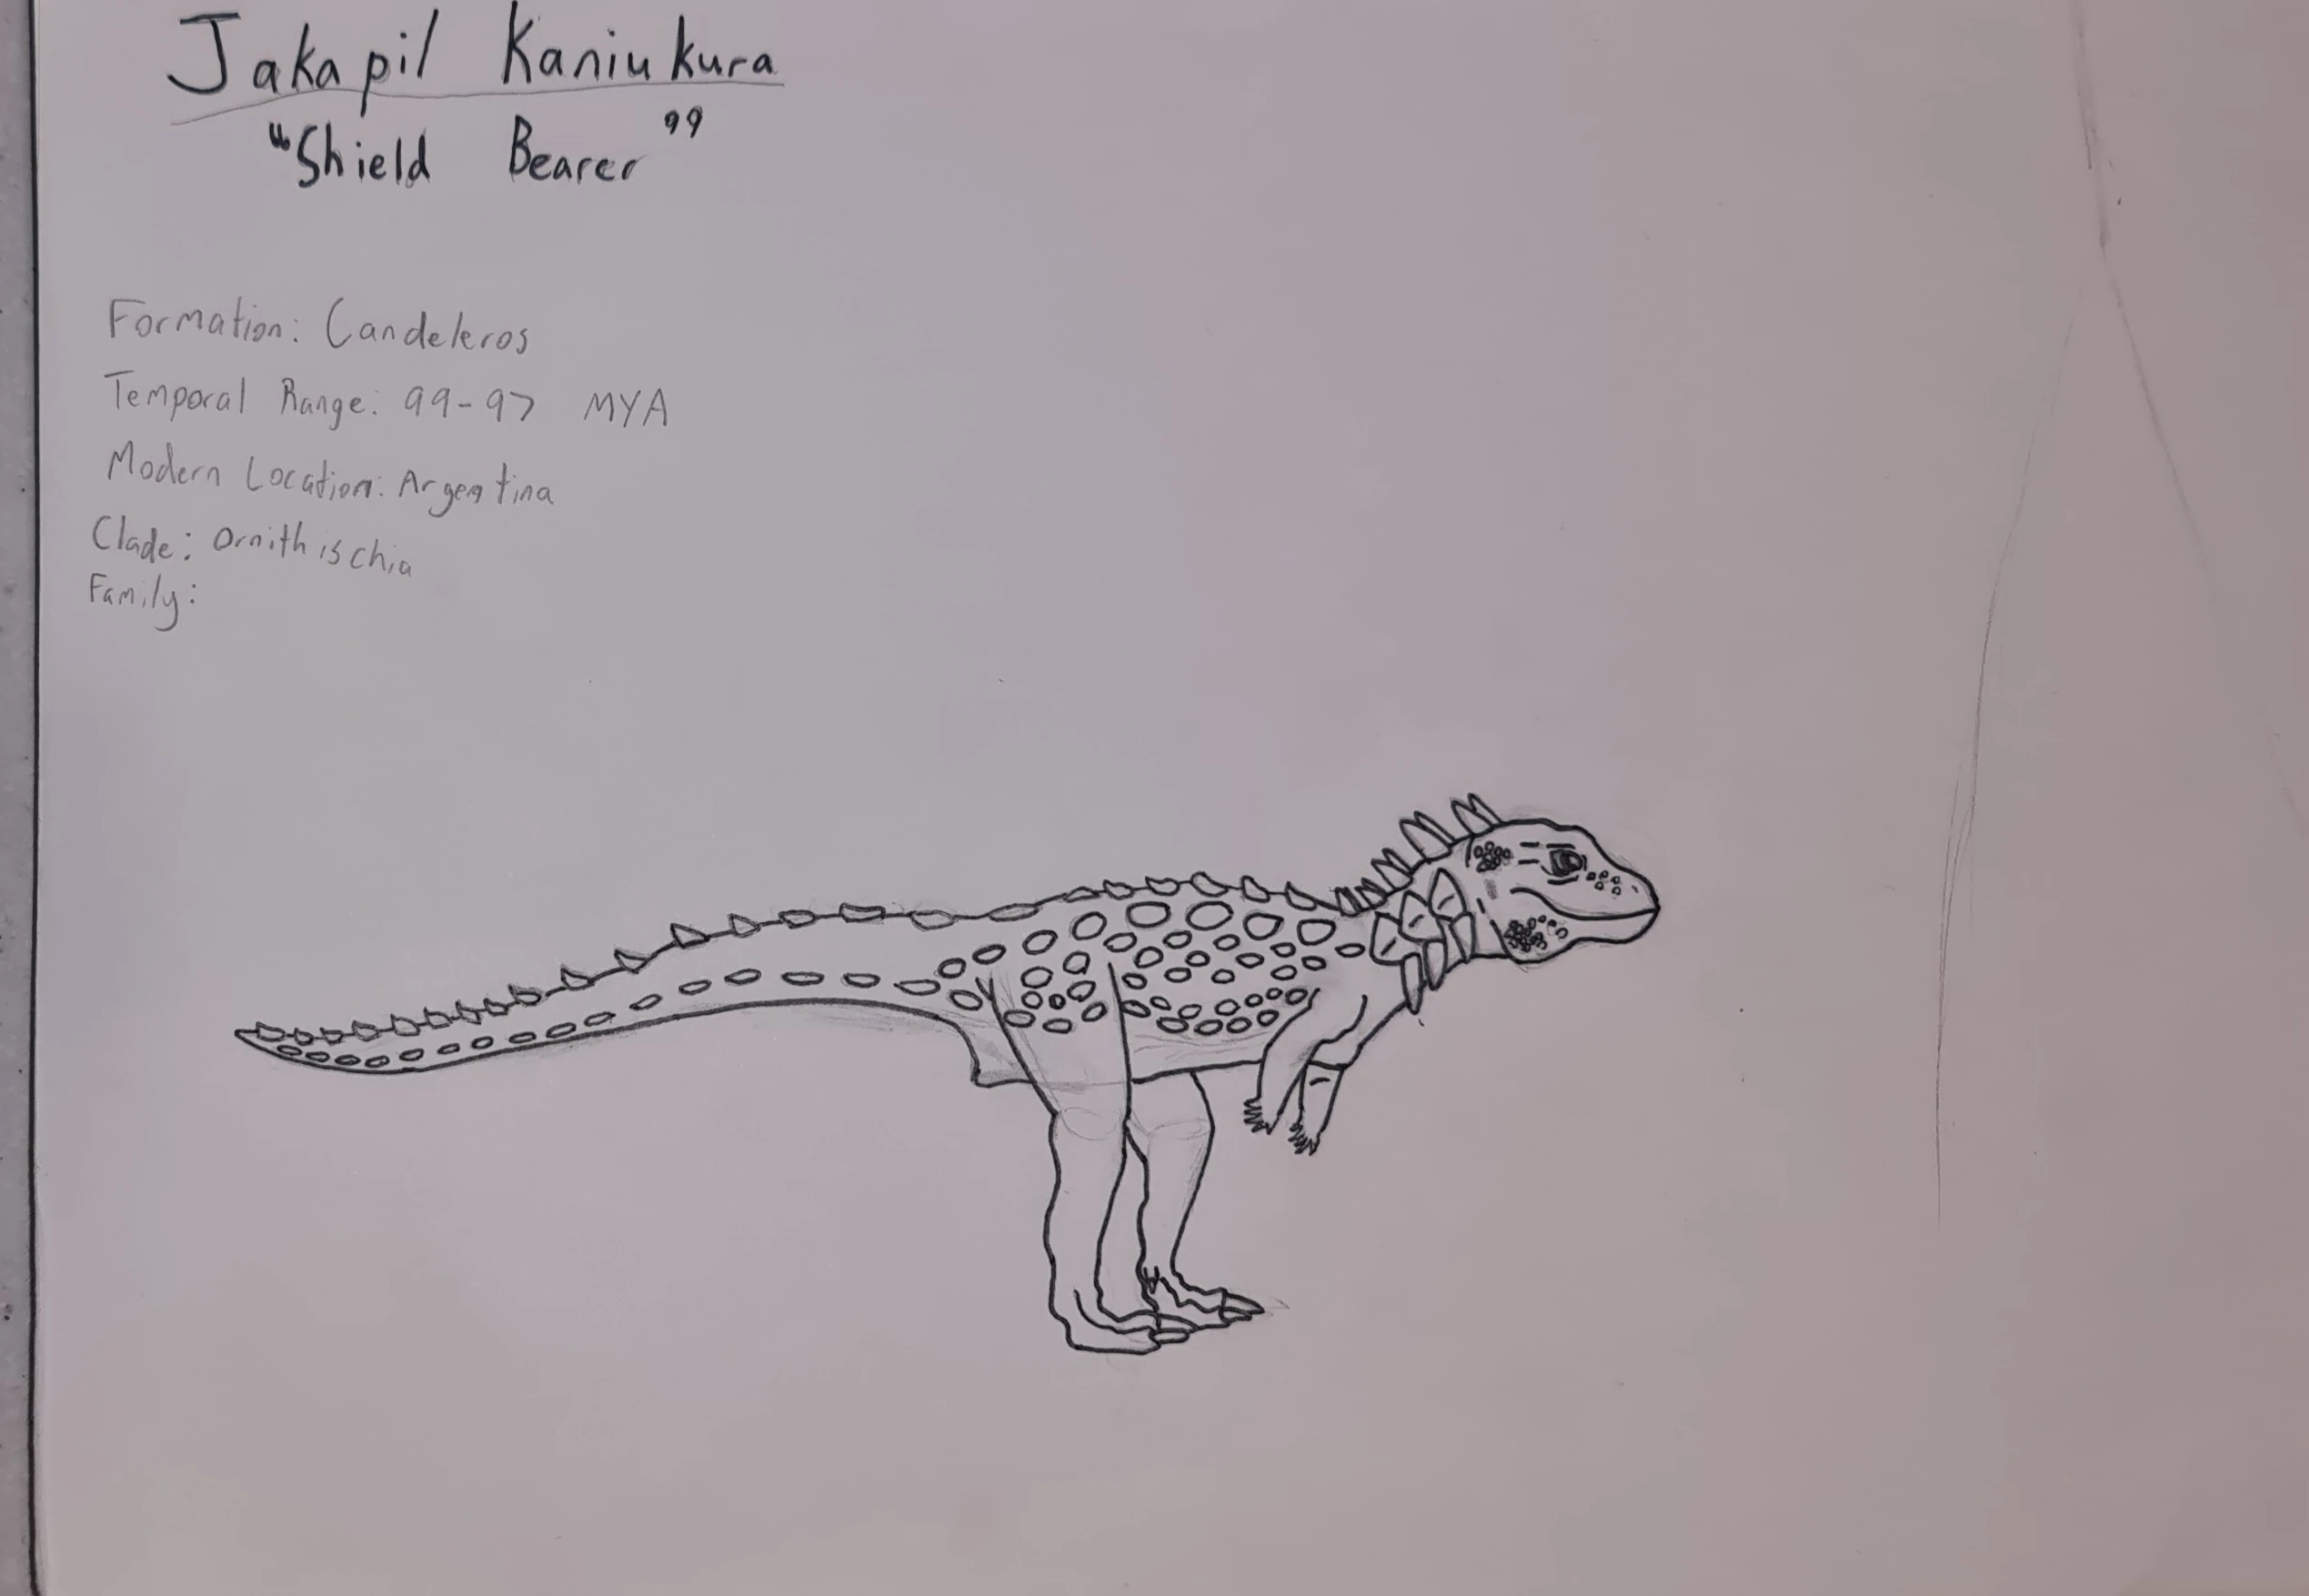 Jakapil Kaniukura
"Shield Bearer"
Formation: Candeleros
Temporal Range: 99-97 MYA
Modern Location: Argentina
Clade: Ornithischia
Family: